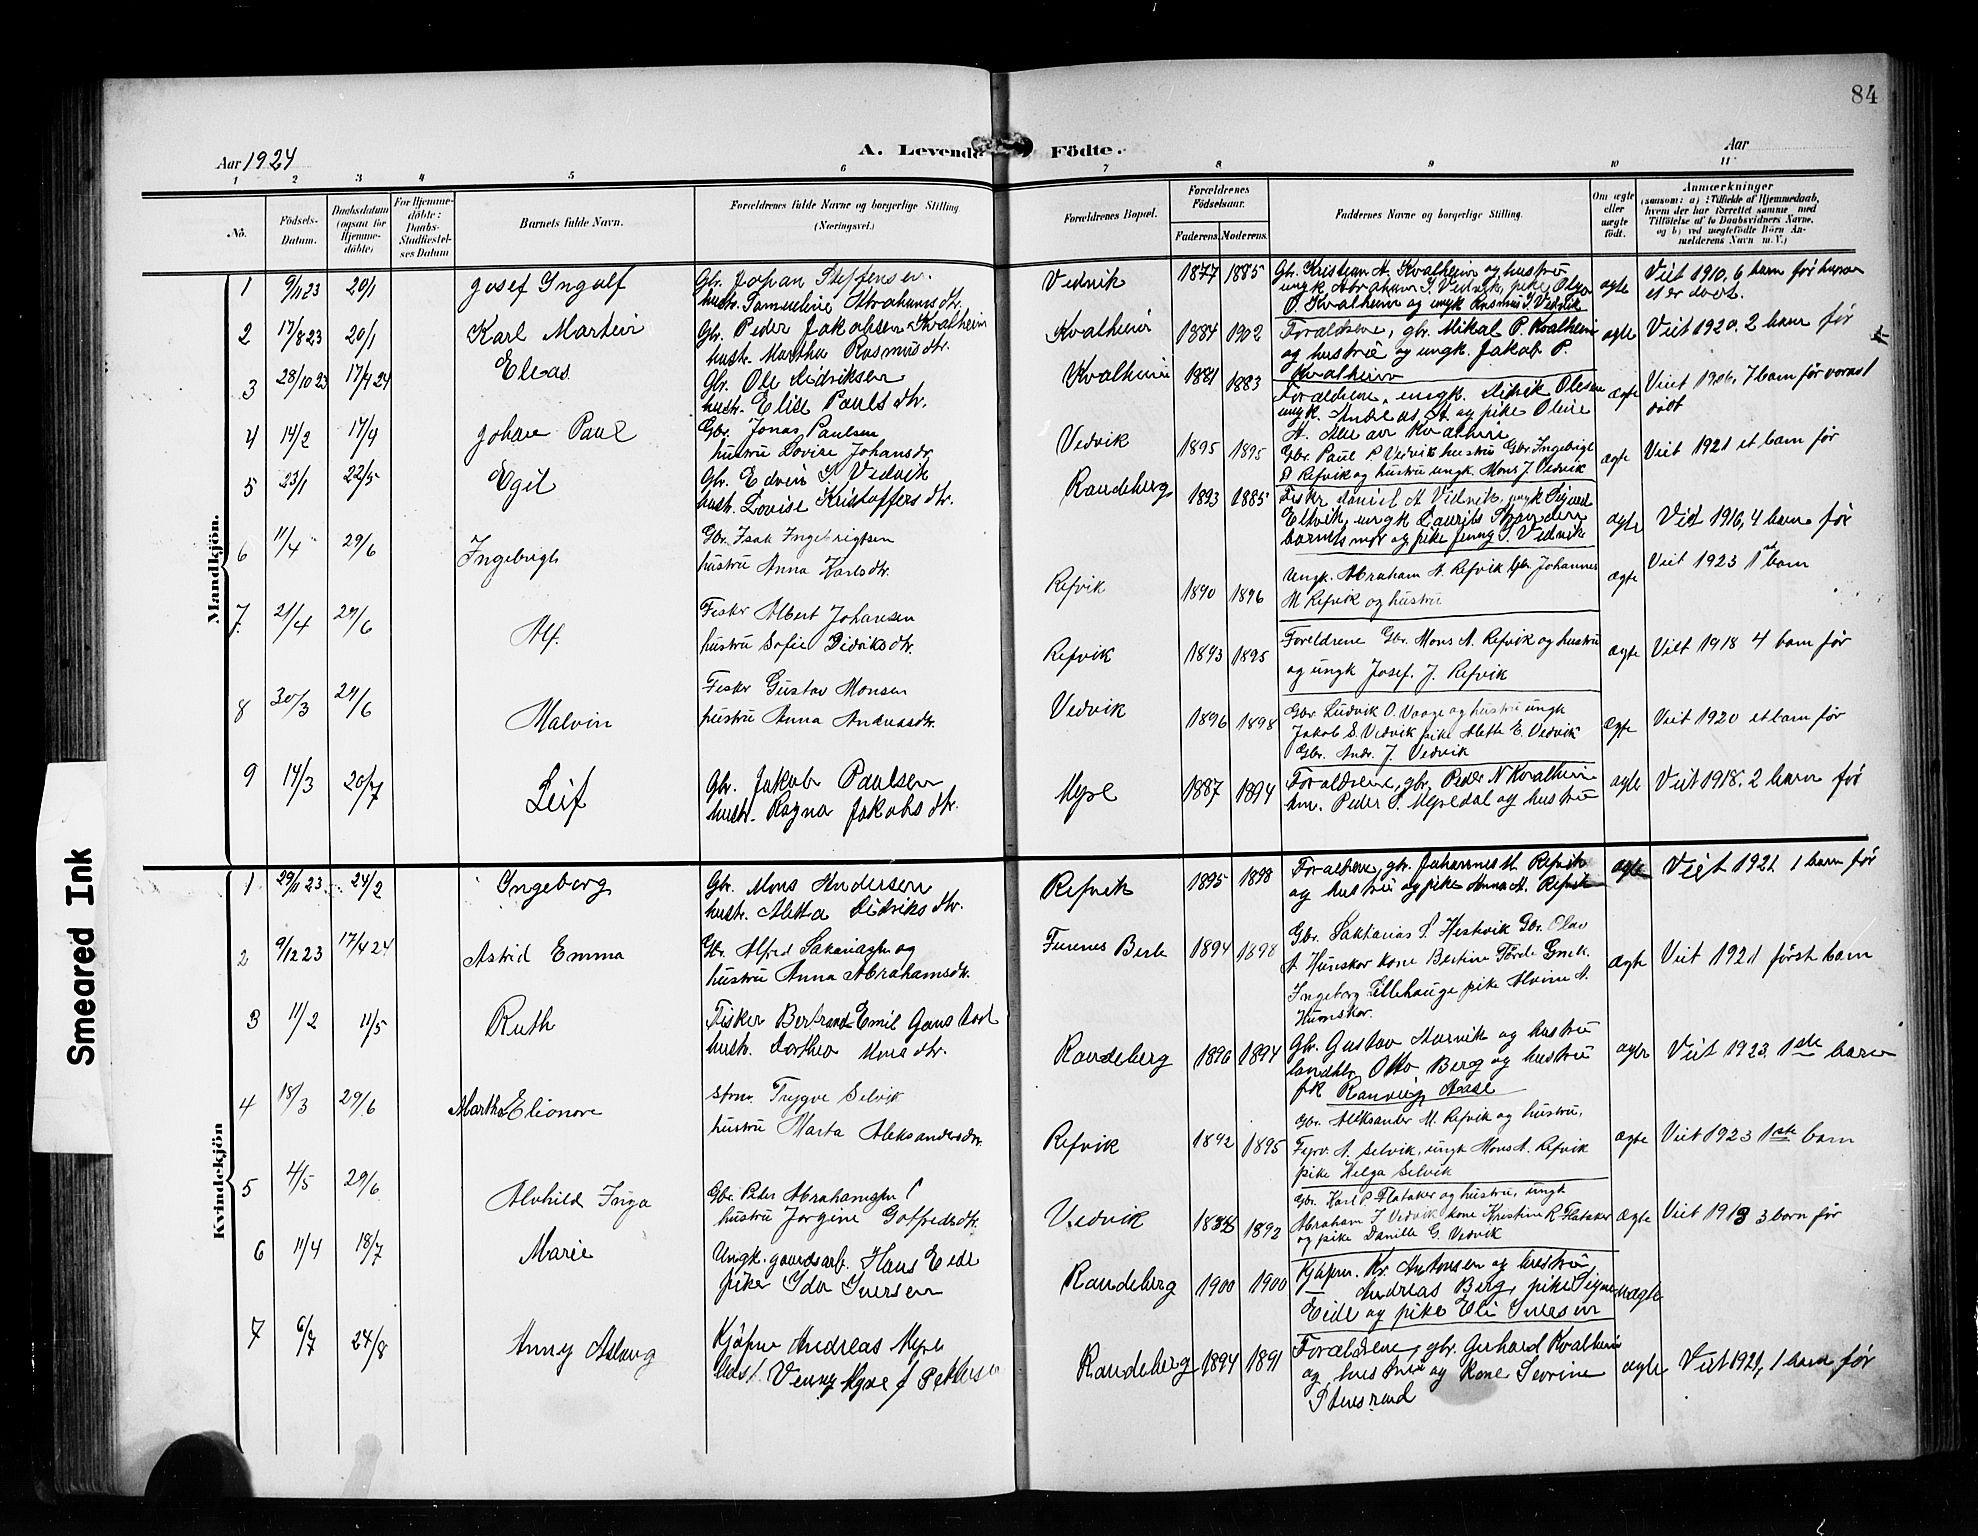 84
Aar 1924
A. Levende Födte.
Aar
1 2 3 4 5 6 7 8 9 10 11
No.
Födsels-
Datum.
Daabsdatum
(ogsaa for
Hjemme-
döbte)
For Hjemme-
döbte:
Daabs-
Stadfæstel-
ses Datum
Barnets fulde Navn.
Forældrenes fulde Navne og borgerlige Stilling
(Næringsvei.)
Forældrenes Bopæl.
Forældrenes
Födselsaar.
Faderens. Moderens.
Faddernes Navne og borgerlige Stilling.
Om ægte
eller
uægte
födt.
Anmærkninger
(saasom: a) i Tilfælde af Hjemmedaab,
hvem der har forrettet samme, med
Tilföielse af to Daabsvidners Navne,
og b) ved uægtefödte Börn An-
melderens Navn m. V.)
Mandkjön.
1 9/11 23 20/1 Josef Ingolf
Gbr. Johan Steffensen
hustr. Samueline Abrahamsdtr.
Vedvik 1877 1885
Gbr. Kristian A. Kvalheim og hustru
ungk. Abraham J. Vedvik, pike Olga
P. Kvalheim og ungk. Rasmus J. Vedvik
ægte Viet 1910, 6 barn før hvorav
et er dødt.
2 17/8 23 20/1 Karl Martin
Gbr. Peder Jakobsen Kvalheim
hustr. Martha Rasmusdtr.
Kvalheim 1884 1902
Forældrene, gbr. Mikal P. Kvalheim
og hustru og ungk. Jakob P.
Kvalheim
ægte Viet 1920. 2 barn før
3 28/10 23 17/4 24 Elias
Gbr. Ole Didriksen
hustr. Elise Paulsdtr.
Kvalheim 1881 1883
Forældrene, ungk. Didrik Olesen
ungk. Andreas A. og pike Oline
A. Alle av Kvalheim
ægte Viet 1906. 7 barn før hvorav 1
dødt
4 14/2 17/4 Johan Paul
Gbr. Jonas Paulsen
hustru Lovise Johansdr.
Vedvik 1895 1895
Gbr. Paul P Vedvik hustru Gbr Ingebrigt
D Refvik og hustru ungk. Mons J. Vedvik
ægte Viet 1921 et barn før
5 23/1 22/5 Egil
Gbr. Edvin J. Vedvik
hustr. Lovise Kristoffersdtr.
Raudeberg 1893 1885
Fisker Daniel A Vedvik, ungk Sigurd
Elvik, ungk Laurits
barnets mor og pike Jenny J. Vedvik
ægte Viet 1916, 4 barn før
6 11/4 29/6 Ingebrigt
Gbr. Isak Ingebrigtsen
hustru Anna Karlsdtr.
Refvik 1890 1896
Ungk. Abraham A. Refvik Gbr Johannes
M Refvik og hustru
ægte Viet 1923 1ste barn
7. 21/4 29/6 Alf.
Fisker Albert Johansen
hustru Sofie Didriksdtr.
Refvik 1893 1895
Foreldrene Gbr. Mons A. Refvik og hustru
og ungk Josef. J. Refvik
ægte Viet 1918 4 barn før
8 30/3 29/6 Malvin
Fisker Gustav Monsen
hustru Anna Andreasdtr.
Vedvik 1896 1898
Gbr Ludvik O. Vaage og hustru ungk
Jakob S. Vedvik pike Alette E. Vedvik
Gbr. Andr. J. Vedvik
ægte Viet 1920 et barn før
9 14/3 20/7 Leif
Gbr. Jakob Paulsen
hustr. Ragna Jakobsdtr.
Myre 1887 1894
Forældrene, gbr. Peder N Kvalheim
hm. Peder S. Myredal og hustru
ægte Viet 1918. 2 barn før
Kvindekjön
1 29/11 23 24/2 Ingeborg
Gbr. Mons Andersen
hustr. Aletta Didriksdtr.
Refvik 1895 1898
Forældrene, gbr. Johannes M. Refvik
og hustru og pike Anna A. Refvik
ægte Viet 1921. 1 barn før
2 9/12 23 17/4 24 Astrid Emma
Gbr. Alfred Sakariassen og
hustru Anna Abrahamsdtr.
Furenes Berle 1894 1898
Gbr. Sakkarias S. Hestvik Gbr. Olav
A. Hunskor kone Bertine Förde Gmk.
Ingeborg Lillehauge pike Alvine A.
Humskor.
ægte Viet 1921 först barn
3 11/2 11/5 Ruth
Fisker Bertrand Emil Gaustad
hustr. Dorthea Monsdtr.
Raudeberg 1896 1894
Gbr. Gustav Aarvik og hustru
landhlr. Otto Berg og hustru
frk Ranveig Aase
ægte Viet 1923. 1ste barn
4 18/3 29/6 Martha Elionore
Strm. Trygve Selvik
hustru Marta Aleksandersdtr
Refvik 1892 1895
Gbr. Aleksander M. Refvik og hustru,
Fyrv. A. Selvik, ungk Mons A. Refvik
pike Helga Selvik
ægte Viet 1923 1ste barn
5 4/5 29/6 Alvhild Inga
Gbr. Peter Abrahamsen
hustru Jorgine Gotfredsdtr.
Vedvik 1892
Gbr. Karl P. Flatøker og hustru, ungk
Abraham J Vedvik kone Kristine R Flatøker
og pike Danille G. Vedvik
ægte Viet 1913 3 born før
6 11/4 18/7 Marie
Ungk. gaardsarb. Hans Eide
pike Ida Iversen
Raudeberg 1900 1900
Kjøpm. Kr. Antonsen og hustru,
Andreas Berg, pike Signe
Eide og pike Eli Iversen
uægte
7 6/7 24/8 Anny Aslaug
Kjöpm Andreas Myre
Hust. Venny Myre f Pettersen
Raudeberg 1894 1891
Forældrene, gbr. Gerhard Kvalheim
og hustru og kone Sevrine
Stensrand
ægte Viet 1921, 1 barn før
Smeared Ink